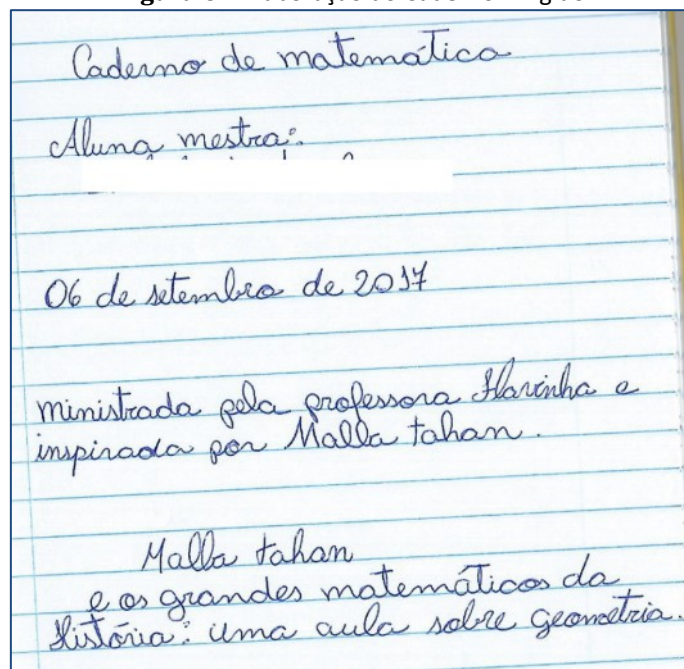 Caderno de matemática
Aluna mestra:
06 de setembro de 2017
ministrada pela professora Flavinha e
inspirada por Malba tahan.
Malba tahan
e os grandes matemáticos da
História: uma aula sobre geometria.